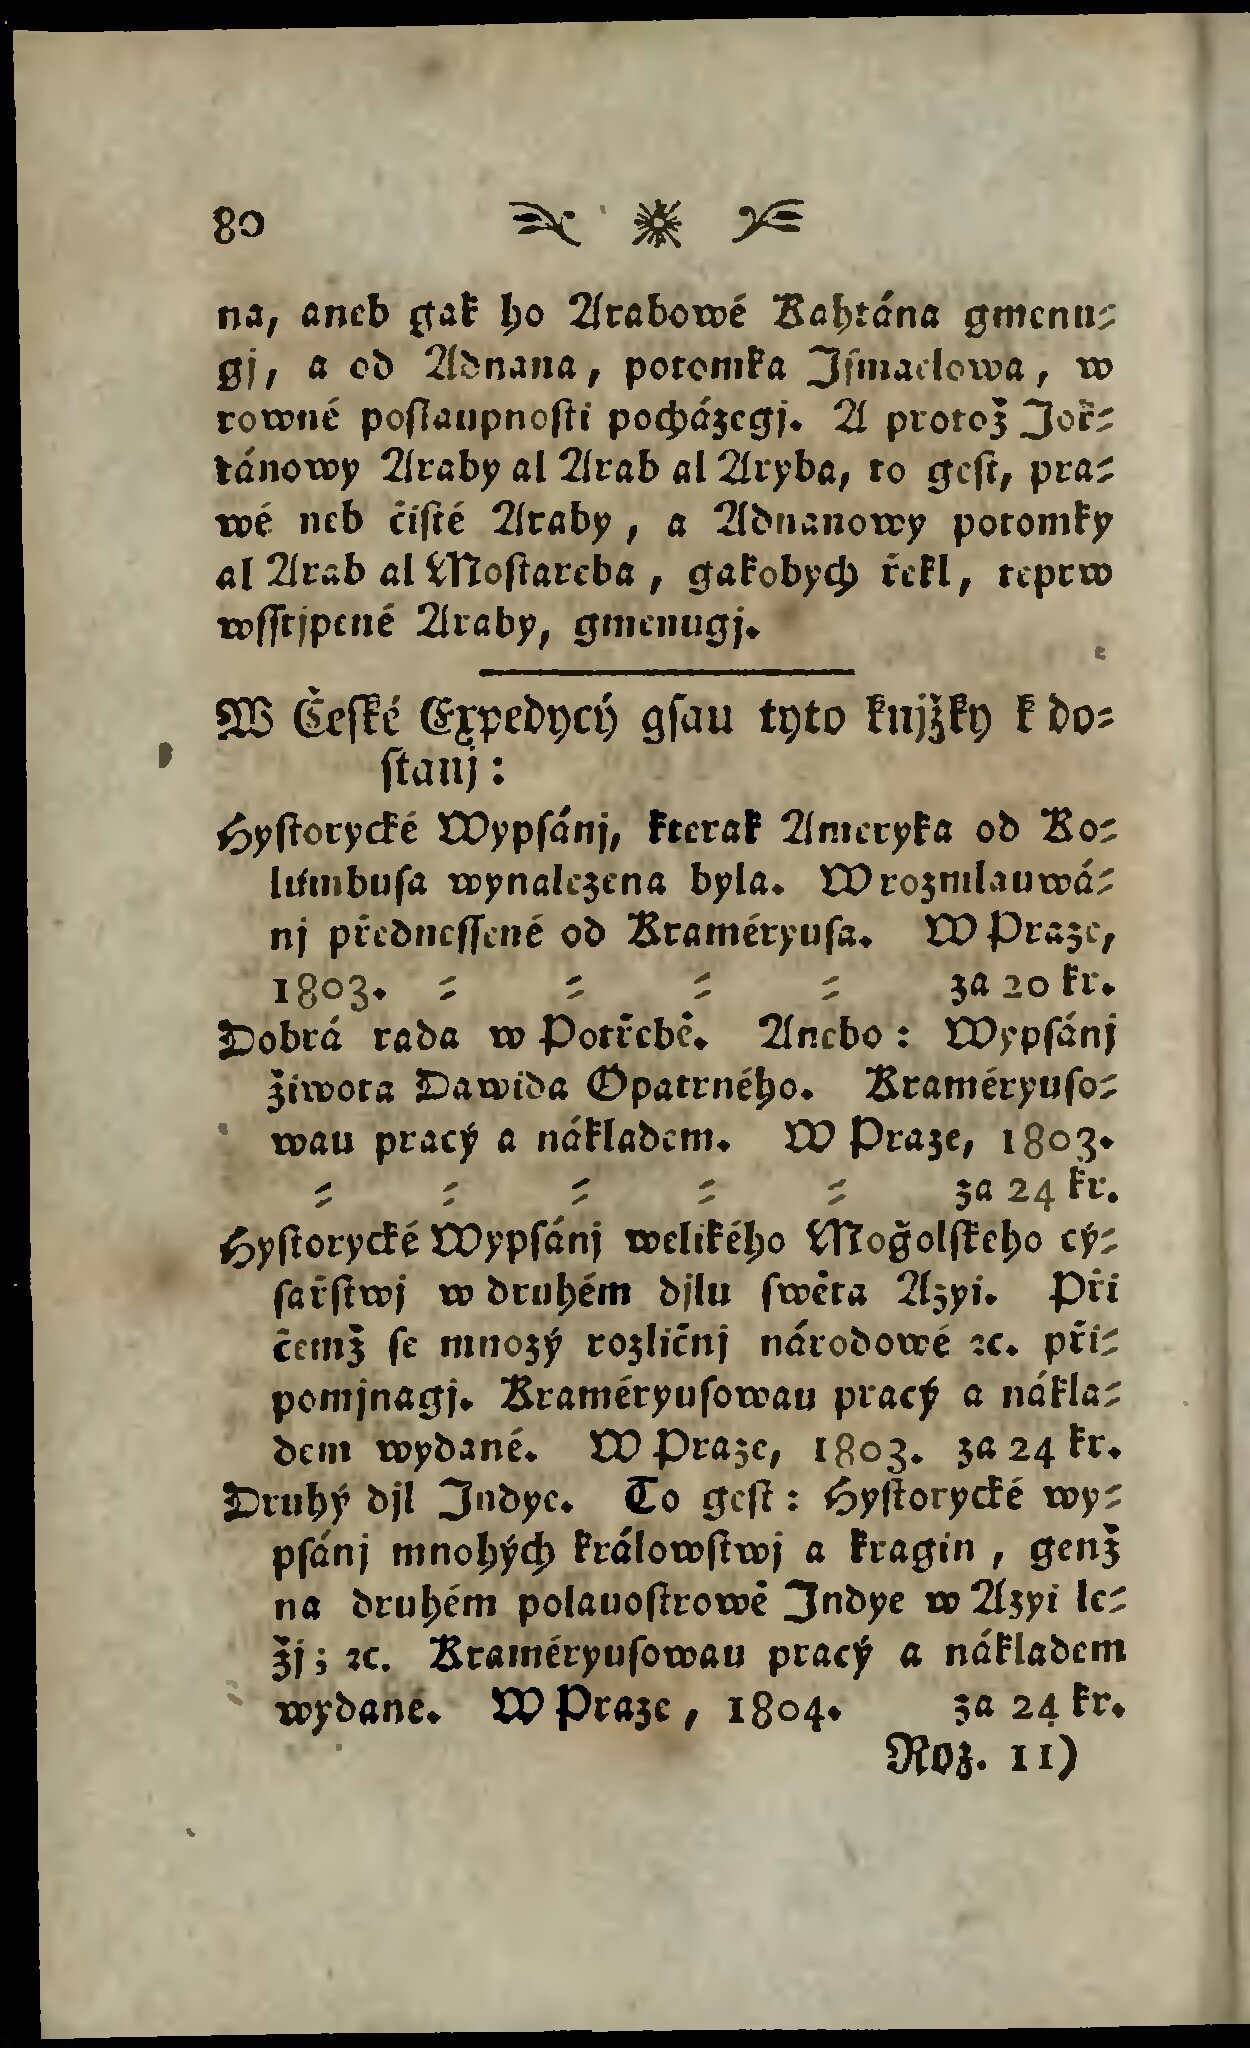 80
na, aneb gak ho Arabowé Kahtána gmenu⸗
gj, a od Adnana, potomka Jſmaelowa, w
rowné poſlaupnoſti pocházegj. A protož Jok⸗
tánowy Araby al Arab al Aryba, to geſt, pra⸗
wé neb čiſté Araby, a Adnanowy potomky
al Arab al Moſtareba, gakobych řekl, teprw
wſſtjpené Araby, gmenugj.
W Čeſké Expedycý gſau tyto knjžky k do⸗
ſtanj:
Hyſtorycké Wypſánj, kterak Ameryka od Ko⸗
lumbuſa wynalezena byla. W rozmlauwá⸗
nj předneſſené od Kraméryuſa. W Praze,
1803. ⸗ ⸗ ⸗ ⸗ za 20 kr.
Dobrá rada w Potřebě. Anebo: Wypſánj
žiwota Dawida Opatrného. Kraméryuſo⸗
wau pracý a nákladem. W Praze, 1803.
⸗ ⸗ ⸗ ⸗ ⸗ za 24 kr.
Hyſtorycké Wypſánj welikého Moğolſkeho cý⸗
ſařſtwj w druhém djlu ſwěta Azyi. Při
čemž ſe mnozý rozličnj národowé ꝛc. při⸗
pomjnagj. Kraméryuſowau pracý a nákla⸗
dem wydané. W Praze, 1803. za 24 kr.
Druhý djl Jndye. To geſt: Hyſtorycké wy⸗
pſánj mnohých králowſtwj a kragin, genž
na druhém polauoſtrowě Jndye w Azyi le⸗
žj; ꝛc. Kraméryuſowau pracý a nákladem
wydané. W Praze, 1804. za 24 kr.
Roz. 11)